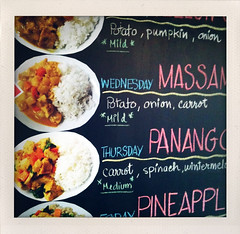 Potato, pumpkin, onion
*Mild*
WEDNESDAY MASSAM
Potato, onion, carrot
*Mild*
THURSDAY PANANG
Carrot, spinach, wintermelo
*Medium*
DAY PINEAPPL